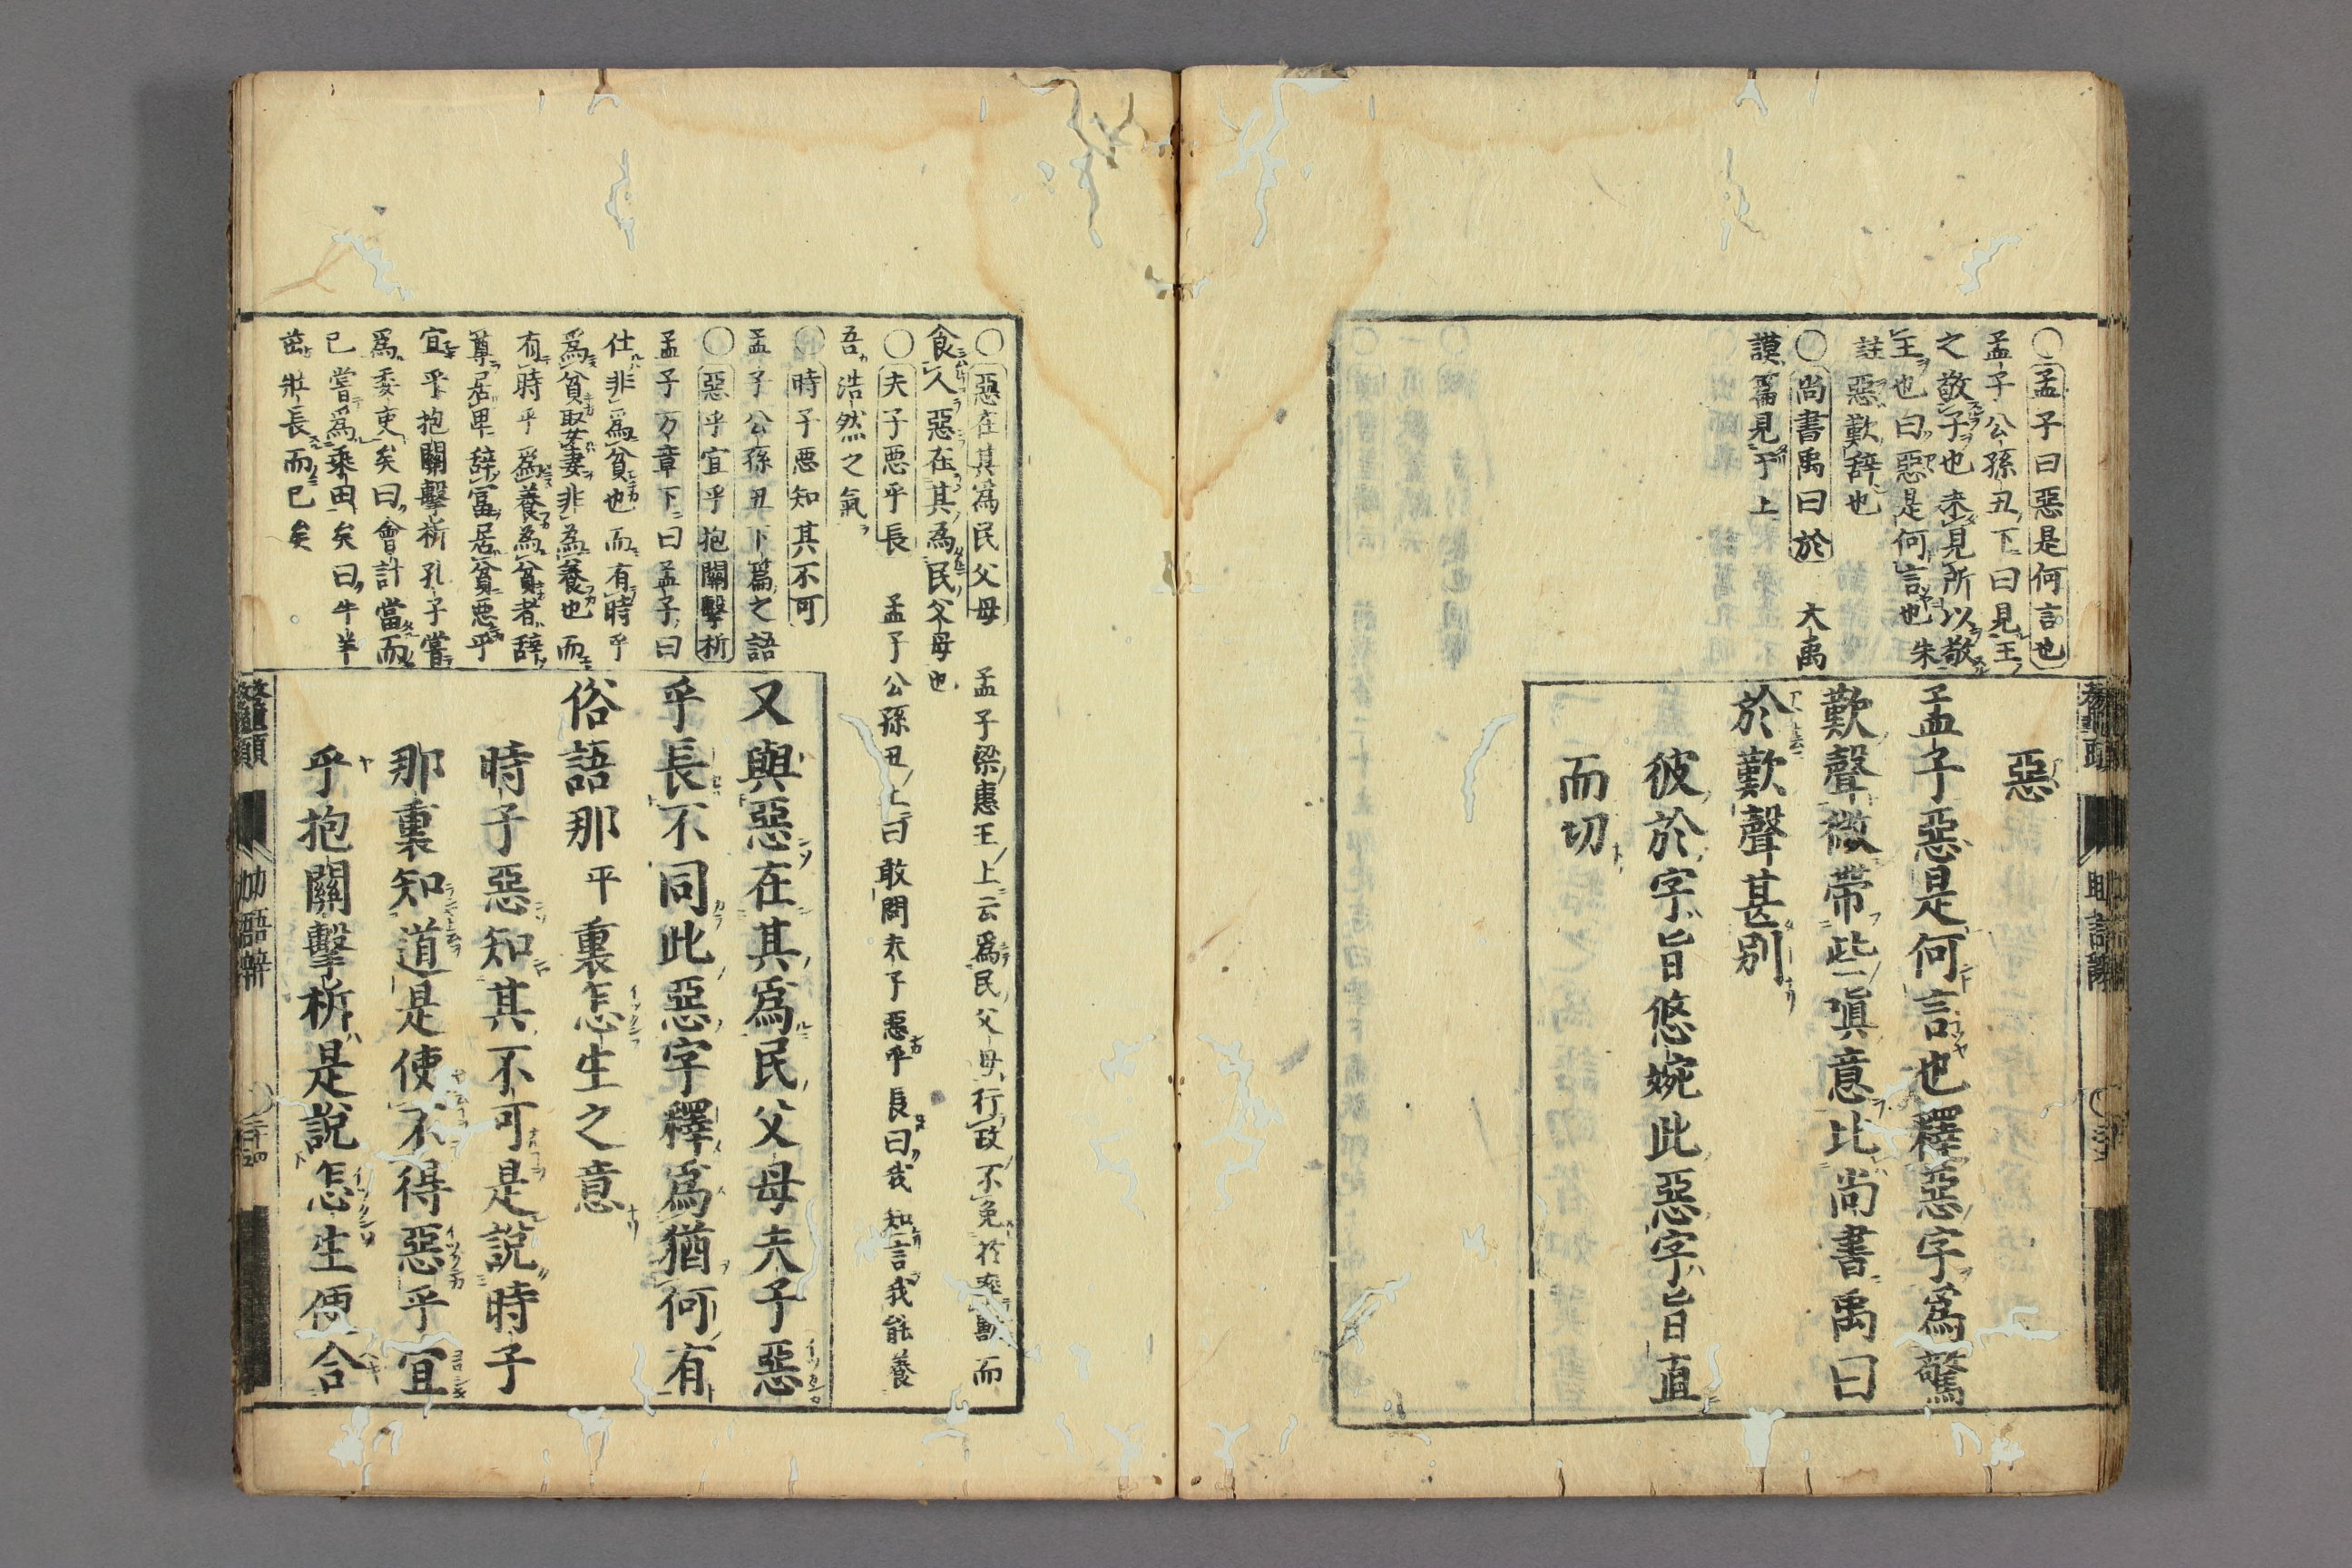 ○孟子曰惡是何言也
孟子公孫丑下曰見王
之敬子也未見所以敬
王也曰惡是何言也 朱
註惡歎辞也
○尚書禹曰於 大禹
謨篇見于上
惡
孟子惡是何言也釋惡字爲驚
歎聲微帶些嗔意比尚書禹曰
於歎聲甚別
彼於字旨悠婉此惡字旨直
而切
○惡在其爲民父母 孟子梁惠王上云爲民父母行政不免於率獸而
食人惡在其為民父母也
○夫子悪乎長 孟子公孫丑上曰敢問夫子惡乎長曰我知言我能養
吾浩然之氣
○時子悪知其不可
孟子公孫丑下篇之語
○惡乎宜乎抱關擊柝
孟子万章下曰孟子曰
仕非爲貧也而有時乎
爲貧娶妻非為養也而
有時乎爲養為貧者辞
尊居卑辞冨居貧悪乎
宜乎抱關擊柝孔子嘗
爲委吏矣曰會計當而
已嘗爲乘田矣曰牛羊
茁壯長而已矣
又與惡在其爲民父母夫子惡
乎長不同此惡字釋爲猶何有
俗語那平裏怎生之意
時子惡知其不可是說時子
那裏知道是使不得惡乎宜
乎抱關擊柝是說怎生便合
鼇頭 助語辭 二十四